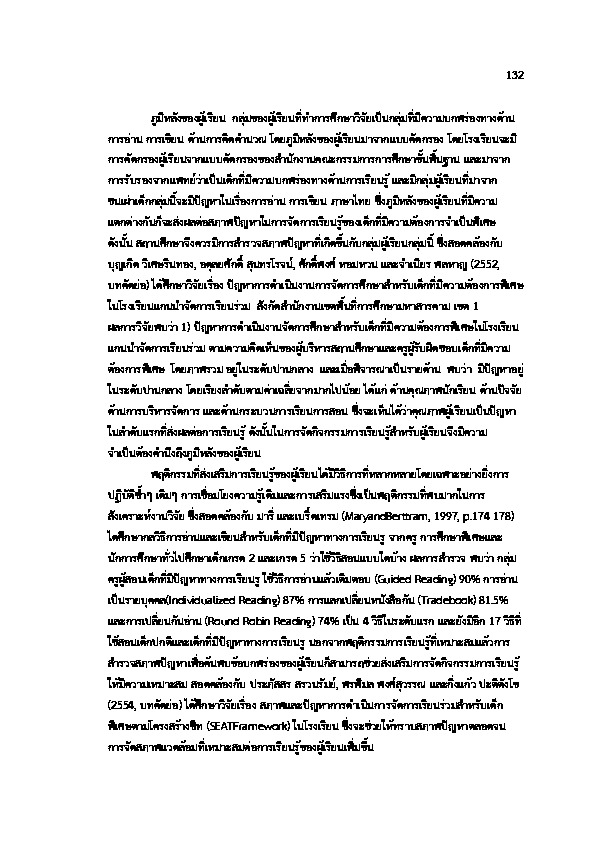 132
ภูมิหลังของผู้เรียน กลุ่มของผู้เรียนที่ทำการศึกษาวิจัยเป็นกลุ่มที่มีความบกพร่องทางด้าน
การอ่าน การเขียน ด้านการคิดคำนวณ โดยภูมิหลังของผู้เรียนมาจากแบบคัดกรอง โดยโรงเรียนจะมี
การคัดกรองผู้เรียนจากแบบคัดกรองของสำนักงานคณะกรรมการการศึกษาขั้นพื้นฐาน และมาจาก
การรับรองจากแพทย์ว่าเป็นเด็กที่มีความบกพร่องทางด้านการเรียนรู้ และมีกลุ่มผู้เรียนที่มาจาก
ชนเผ่าเด็กกลุ่มนี้จะมีปัญหาในเรื่องการอ่าน การเขียน ภาษาไทย ซึ่งภูมิหลังของผู้เรียนที่มีความ
แตกต่างกันก็จะส่งผลต่อสภาพปัญหาในการจัดการเรียนรู้ของเด็กที่มีความต้องการจำเป็นพิเศษ
ดังนั้น สถานศึกษาจึงควรมีการสำรวจสภาพปัญหาที่เกิดขึ้นกับกลุ่มผู้เรียนกลุ่มนี้ ซึ่งสอดคล้องกับ
บุญเกิด วิเศษรินทอง, อดุลยศักดิ์ สุนทรโรจน์, ศักดิ์พงศ์ หอมหวน และจำเนียร พลหาญ (2552,
บทคัดย่อ) ได้ศึกษาวิจัยเรื่อง ปัญหาการดำเนินงานการจัดการศึกษาสำหรับเด็กที่มีความต้องการพิเศษ
ในโรงเรียนแกนนำจัดการเรียนร่วม สังกัดสำนักงานเขตพื้นที่การศึกษามหาสารคาม เขต 1
ผลการวิจัยพบว่า 1) ปัญหาการดำเนินงานจัดการศึกษาสำหรับเด็กที่มีความต้องการพิเศษในโรงเรียน
แกนนำจัดการเรียนร่วม ตามความคิดเห็นของผู้บริหารสถานศึกษาและครูผู้รับผิดชอบเด็กที่มีความ
ต้องการพิเศษ โดยภาพรวม อยู่ในระดับปานกลาง และเมื่อพิจารณาเป็นรายด้าน พบว่า มีปัญหาอยู่
ในระดับปานกลาง โดยเรียงลำดับตามค่าเฉลี่ยจากมากไปน้อย ได้แก่ ด้านคุณภาพนักเรียน ด้านปัจจัย
ด้านการบริหารจัดการ และด้านกระบวนการเรียนการสอน ซึ่งจะเห็นได้ว่าคุณภาพผู้เรียนเป็นปัญหา
ในลำดับแรกที่ส่งผลต่อการเรียนรู้ ดังนั้นในการจัดกิจกรรมการเรียนรู้สำหรับผู้เรียนจึงมีความ
จำเป็นต้องคำนึงถึงภูมิหลังของผู้เรียน
พฤติกรรมที่ส่งเสริมการเรียนรู้ของผู้เรียนได้มีวิธีการที่หลากหลายโดยเฉพาะอย่างยิ่งการ
ปฏิบัติซ้ำๆ เดิมๆ การเชื่อมโยงความรู้เดิมและการเสริมแรงซึ่งเป็นพฤติกรรมที่พบมากในการ
สังเคราะห์งานวิจัย ซึ่งสอดคล้องกับ มารี่ และเบริ์ตเทรม (MaryandBerttram, 1997, p.174 178)
ได้ศึกษากลวิธีการอ่านและเขียนสำหรับเด็กที่มีปัญหาทางการเรียนรู้ จากครู การศึกษาพิเศษและ
นักการศึกษาทั่วไปศึกษาเด็กเกรด 2 และเกรด 5 ว่าใช้วิธีสอนแบบใดบ้าง ผลการสำรวจ พบว่า กลุ่ม
ครูผู้สอนเด็กที่มีปัญหาทางการเรียนรู้ ใช้วิธีการอ่านแล้วเติมตอบ (Guided Reading) 90% การอ่าน
เป็นรายบุคคล(Individualized Reading) 87% การแลกเปลี่ยนหนังสือกัน (Tradebook) 81.5%
และการเปลี่ยนกันอ่าน (Round Robin Reading) 74% เป็น 4 วิธีในระดับแรก และยังมีอีก 17 วิธีที่
ใช้สอนเด็กปกติและเด็กที่มีปัญหาทางการเรียนรู้ นอกจากพฤติกรรมการเรียนรู้ที่เหมาะสมแล้วการ
สำรวจสภาพปัญหาเพื่อค้นพบข้อบกพร่องของผู้เรียนก็สามารถช่วยส่งเสริมการจัดกิจกรรมการเรียนรู้
ให้มีความเหมาะสม สอดคล้องกับ ประภัสสร สรวนรัมย์, พรพิมล พงศ์สุวรรณ และกิ่งแก้ว ปะติตังโข
(2554, บทคัดย่อ) ได้ศึกษาวิจัยเรื่อง สภาพและปัญหาการดำเนินการจัดการเรียนร่วมสำหรับเด็ก
พิเศษตามโครงสร้างซีท (SEATFramework) ในโรงเรียน ซึ่งจะช่วยให้ทราบสภาพปัญหาตลอดจน
การจัดสภาพแวดล้อมที่เหมาะสมต่อการเรียนรู้ของผู้เรียนเพิ่มขึ้น